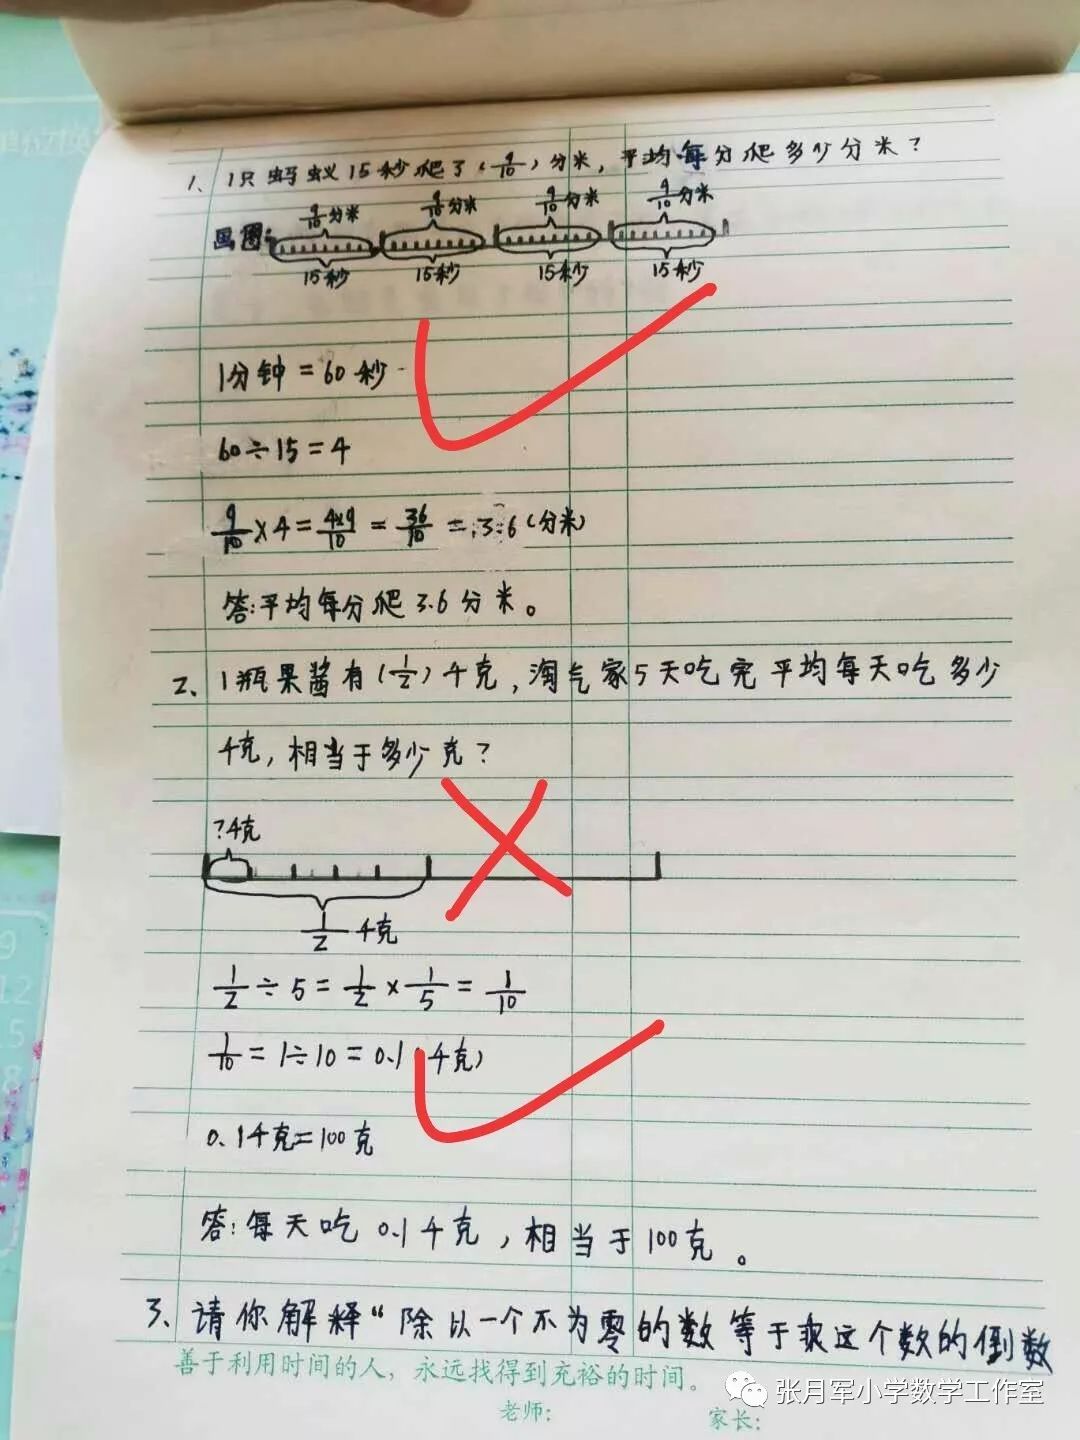 1、1只蚂蚁15秒爬了(9/10)分米，平均每分爬多少分米？
9/10分米 9/10分米 9/10分米 9/10分米
画图：
15秒 15秒 15秒 15秒
1分钟=60秒
60÷15=4
9/10×4=4×9/10=36/10=3.6(分米)
答:平均每分爬3.6分米。
2、1瓶果酱有(1/2)千克,淘气家5天吃完平均每天吃多少
千克,相当于多少克?
?千克
1/2千克
1/2÷5=1/2×1/5=1/10
1/10=1÷10=0.1(千克)
0.1千克=100克
答:每天吃0.1千克,相当于100克。
3、请你解释“除以一个不为零的数等于乘这个数的倒数
善于利用时间的人，永远找得到充裕的时间。
张月军小学数学工作室
老师: 家长: